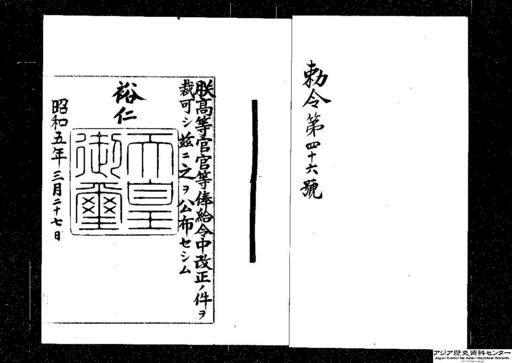 勅令第四十六號
朕高等官官等俸給令中改正ノ件ヲ
裁可シ茲ニ之ヲ公布セシム
裕仁
天皇
御璽
昭和五年三月二十七日
アジア歴史資料センター
Japan Center for Asian Historical Records